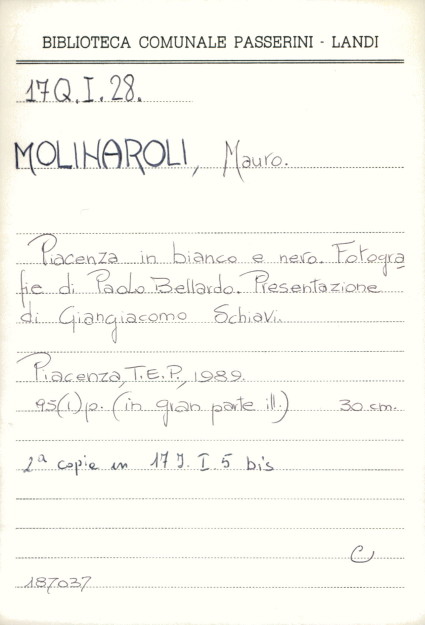 BIBLIOTECA COMUNALE PASSERINI - LANDI
17Q.I.28.
MOLINAROLI, Mauro.
Piacenza in bianco e nero. Fotogra
fie di Paolo Bellardo. Presentazione
di Giangiacomo Schiavi.
Piacenza, T.E.P., 1989.
95(1)p. (in gran parte ill.) 30 cm.
2ª copia in 17 J. I. 5 bis
C
187037